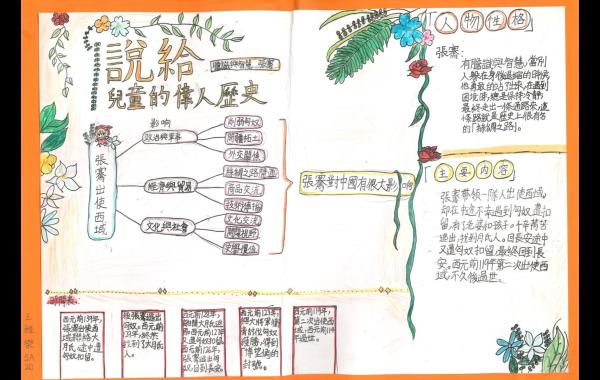 說給
兒童的偉人歷史
膽識與智慧 張騫
張騫出使西域
影响
政治與軍事
削弱匈奴
開疆拓土
外交關係
經濟與貿易
絲綢之路開通
商品交流
技術傳播
文化與社會
文化交流
開闊視野
史學價值
張騫對中國有很大影响
「人物性格」
張騫:
有膽識與智慧,當別
人躲在身後退縮的時候
他勇敢的站了出來,在遇到
困境時,總是保持冷靜,
最終走出一條道路來,這
條路就是歷史上很有名
的「絲綢之路」。
「主要內容」
張騫帶領一隊人出使西域,
却在半途不幸遇到匈奴遭扣
留,有了老婆和孩子。千辛萬苦
逃出,找到月氏人。回長安途中
又遭匈奴扣留,最終回到長
安。西元前119年第二次出使西
域,不久後過世。
時間表:
西元前139年,
張騫出使西
域聯絡大
月氏,途中遭
匈奴扣留。
張騫逃出
匈奴。西元前
129年,終於
找到了大月氏
人。
西元前128年,
西元前126年,
張騫逃出匈
奴,回到長安。
西元前123年,
與大將軍衛
青討伐匈奴
獲勝,得到
「博望侯」的
封號。
西元前119年,
第二次出使西
域,西元前114
年過世。
5A
20